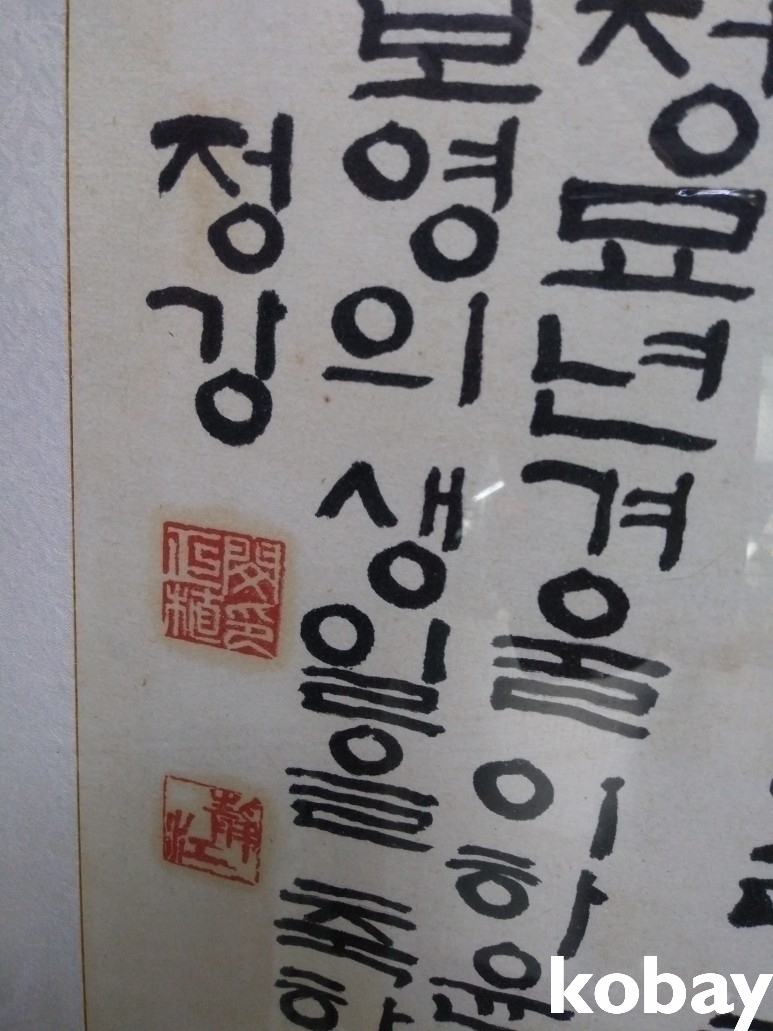 정묘년겨울 이하
보영의 생일을 축하
정강
閔印正植
靜江
kobay